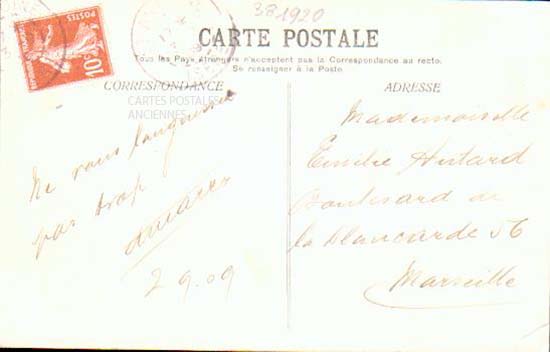 381920
POSTES
10c
CARTE POSTALE
Tous les Pays étrangers n'acceptent pas la Correspondance au recto.
Se renseigner à la Poste.
CORRESPONDANCE
CARTES POSTALES
ANCIENNES
Ne vous
pas trop
2 9.09
ADRESSE
Mademoiselle
Emilie
Boulevard de
la blancarde 56
Marseille